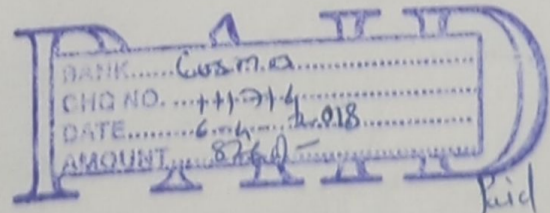 PAID
BANK...... Cosmo
CHQ NO. ...111714
DATE........6-4-2018
AMOUNT......8760/-
Paid